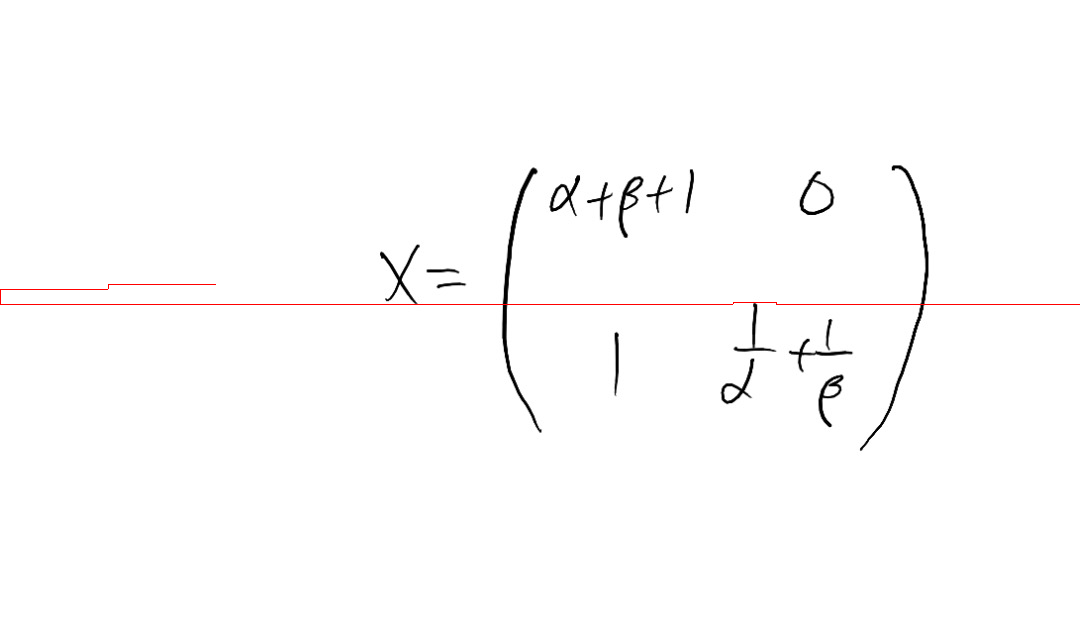 X = ( α+β+1 0
1 1/α + 1/β )